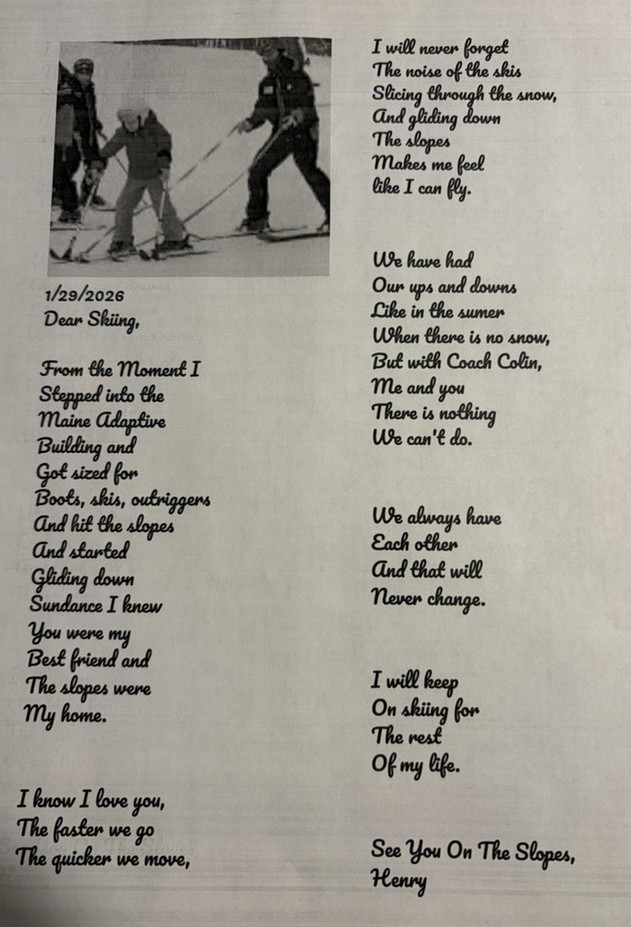 1/29/2026
Dear Skiing,
From the Moment I
Stepped into the
Maine Adaptive
Building and
Got sized for
Boots, skis, outriggers
And hit the slopes
And started
Gliding down
Sundance I knew
You were my
Best friend and
The slopes were
My home.
I know I love you,
The faster we go
The quicker we move,
I will never forget
The noise of the skis
Slicing through the snow,
And gliding down
The slopes
Makes me feel
like I can fly.
We have had
Our ups and downs
Like in the sumer
When there is no snow,
But with Coach Colin,
Me and you
There is nothing
We can't do.
We always have
Each other
And that will
Never change.
I will keep
On skiing for
The rest
Of my life.
See You On The Slopes,
Henry